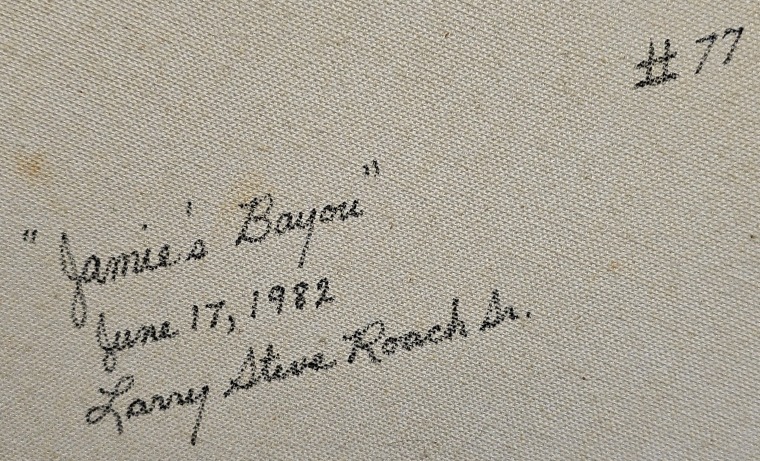 # 77
"Jamie's Bayou"
June 17, 1982
Larry Steve Roach Sr.